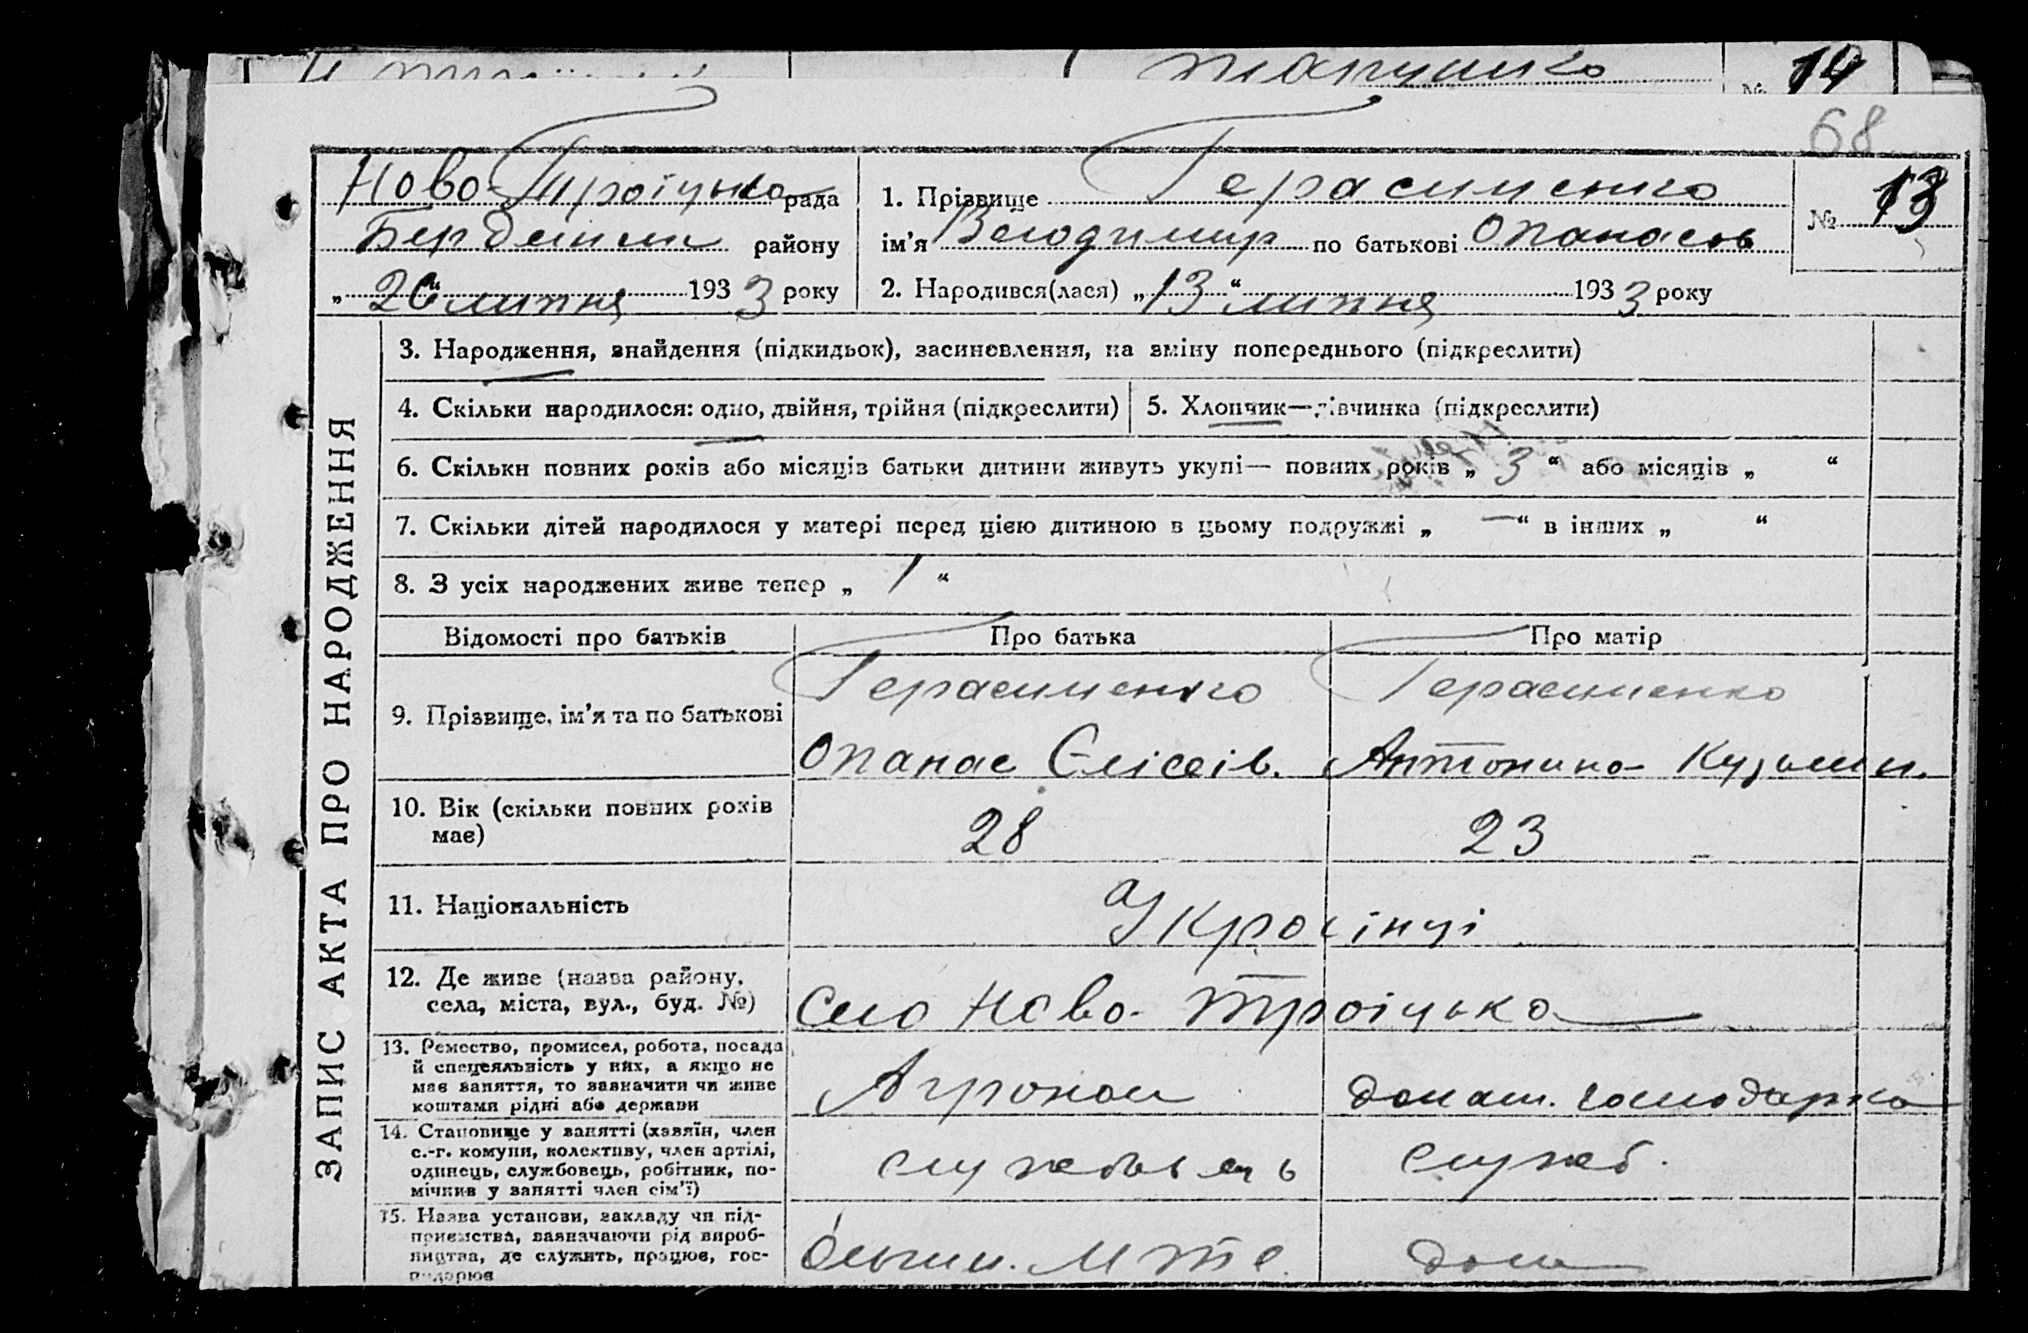 № 14
68
Ново-Троіцька рада
Бердянськ району
„ 20 “ липня 1933 року
1. Прізвище Герасименко
ім’я Володимир по батькові Опанасов
2. Народився(лася) „13“ липня 1933 року
№ 13
ЗАПИС АКТА ПРО НАРОДЖЕННЯ
3. Народження, знайдення (підкидьок), засиновлення, на зміну попереднього (підкреслити)
4. Скільки народилося: одно, двійня, трійня (підкреслити)
5. Хлопчик—дівчинка (підкреслити)
6. Скільки повних років або місяців батьки дитини живуть укупі— повних років „ 3 “ або місяців „ “
7. Скільки дітей народилося у матері перед цією дитиною в цьому подружжі „ —“ в інших „ “
8. З усіх народжених живе тепер „ 1 “
Відомості про батьків
Про батька
Про матір
9. Прізвище, ім’я та по батькові
Герасименко
Опанас Єлісеів.
Герасименко
Антонина Кузьмин.
10. Вік (скільки повних років
має)
28
23
11. Національність
Українці
12. Де живе (назва району,
села, міста, вул., буд. №)
село Ново-Троіцька
13. Ремество, промисел, робота, посада
й спеціяльність у них, а якщо не
має заняття, то зазначити чи живе
коштами рідні або держави
Агроном
домаш. господарка
14. Становище у занятті (хазяїн, член
с.-г. комуни, колективу, член артілі,
одинець, службовець, робітник, по-
мічник у занятті член сім’ї)
службовець
служб.
15. Назва установи, закладу чи під-
приємства, зазначаючи рід вироб-
ництва, де служить, працює, гос-
подарює
МТС
дома